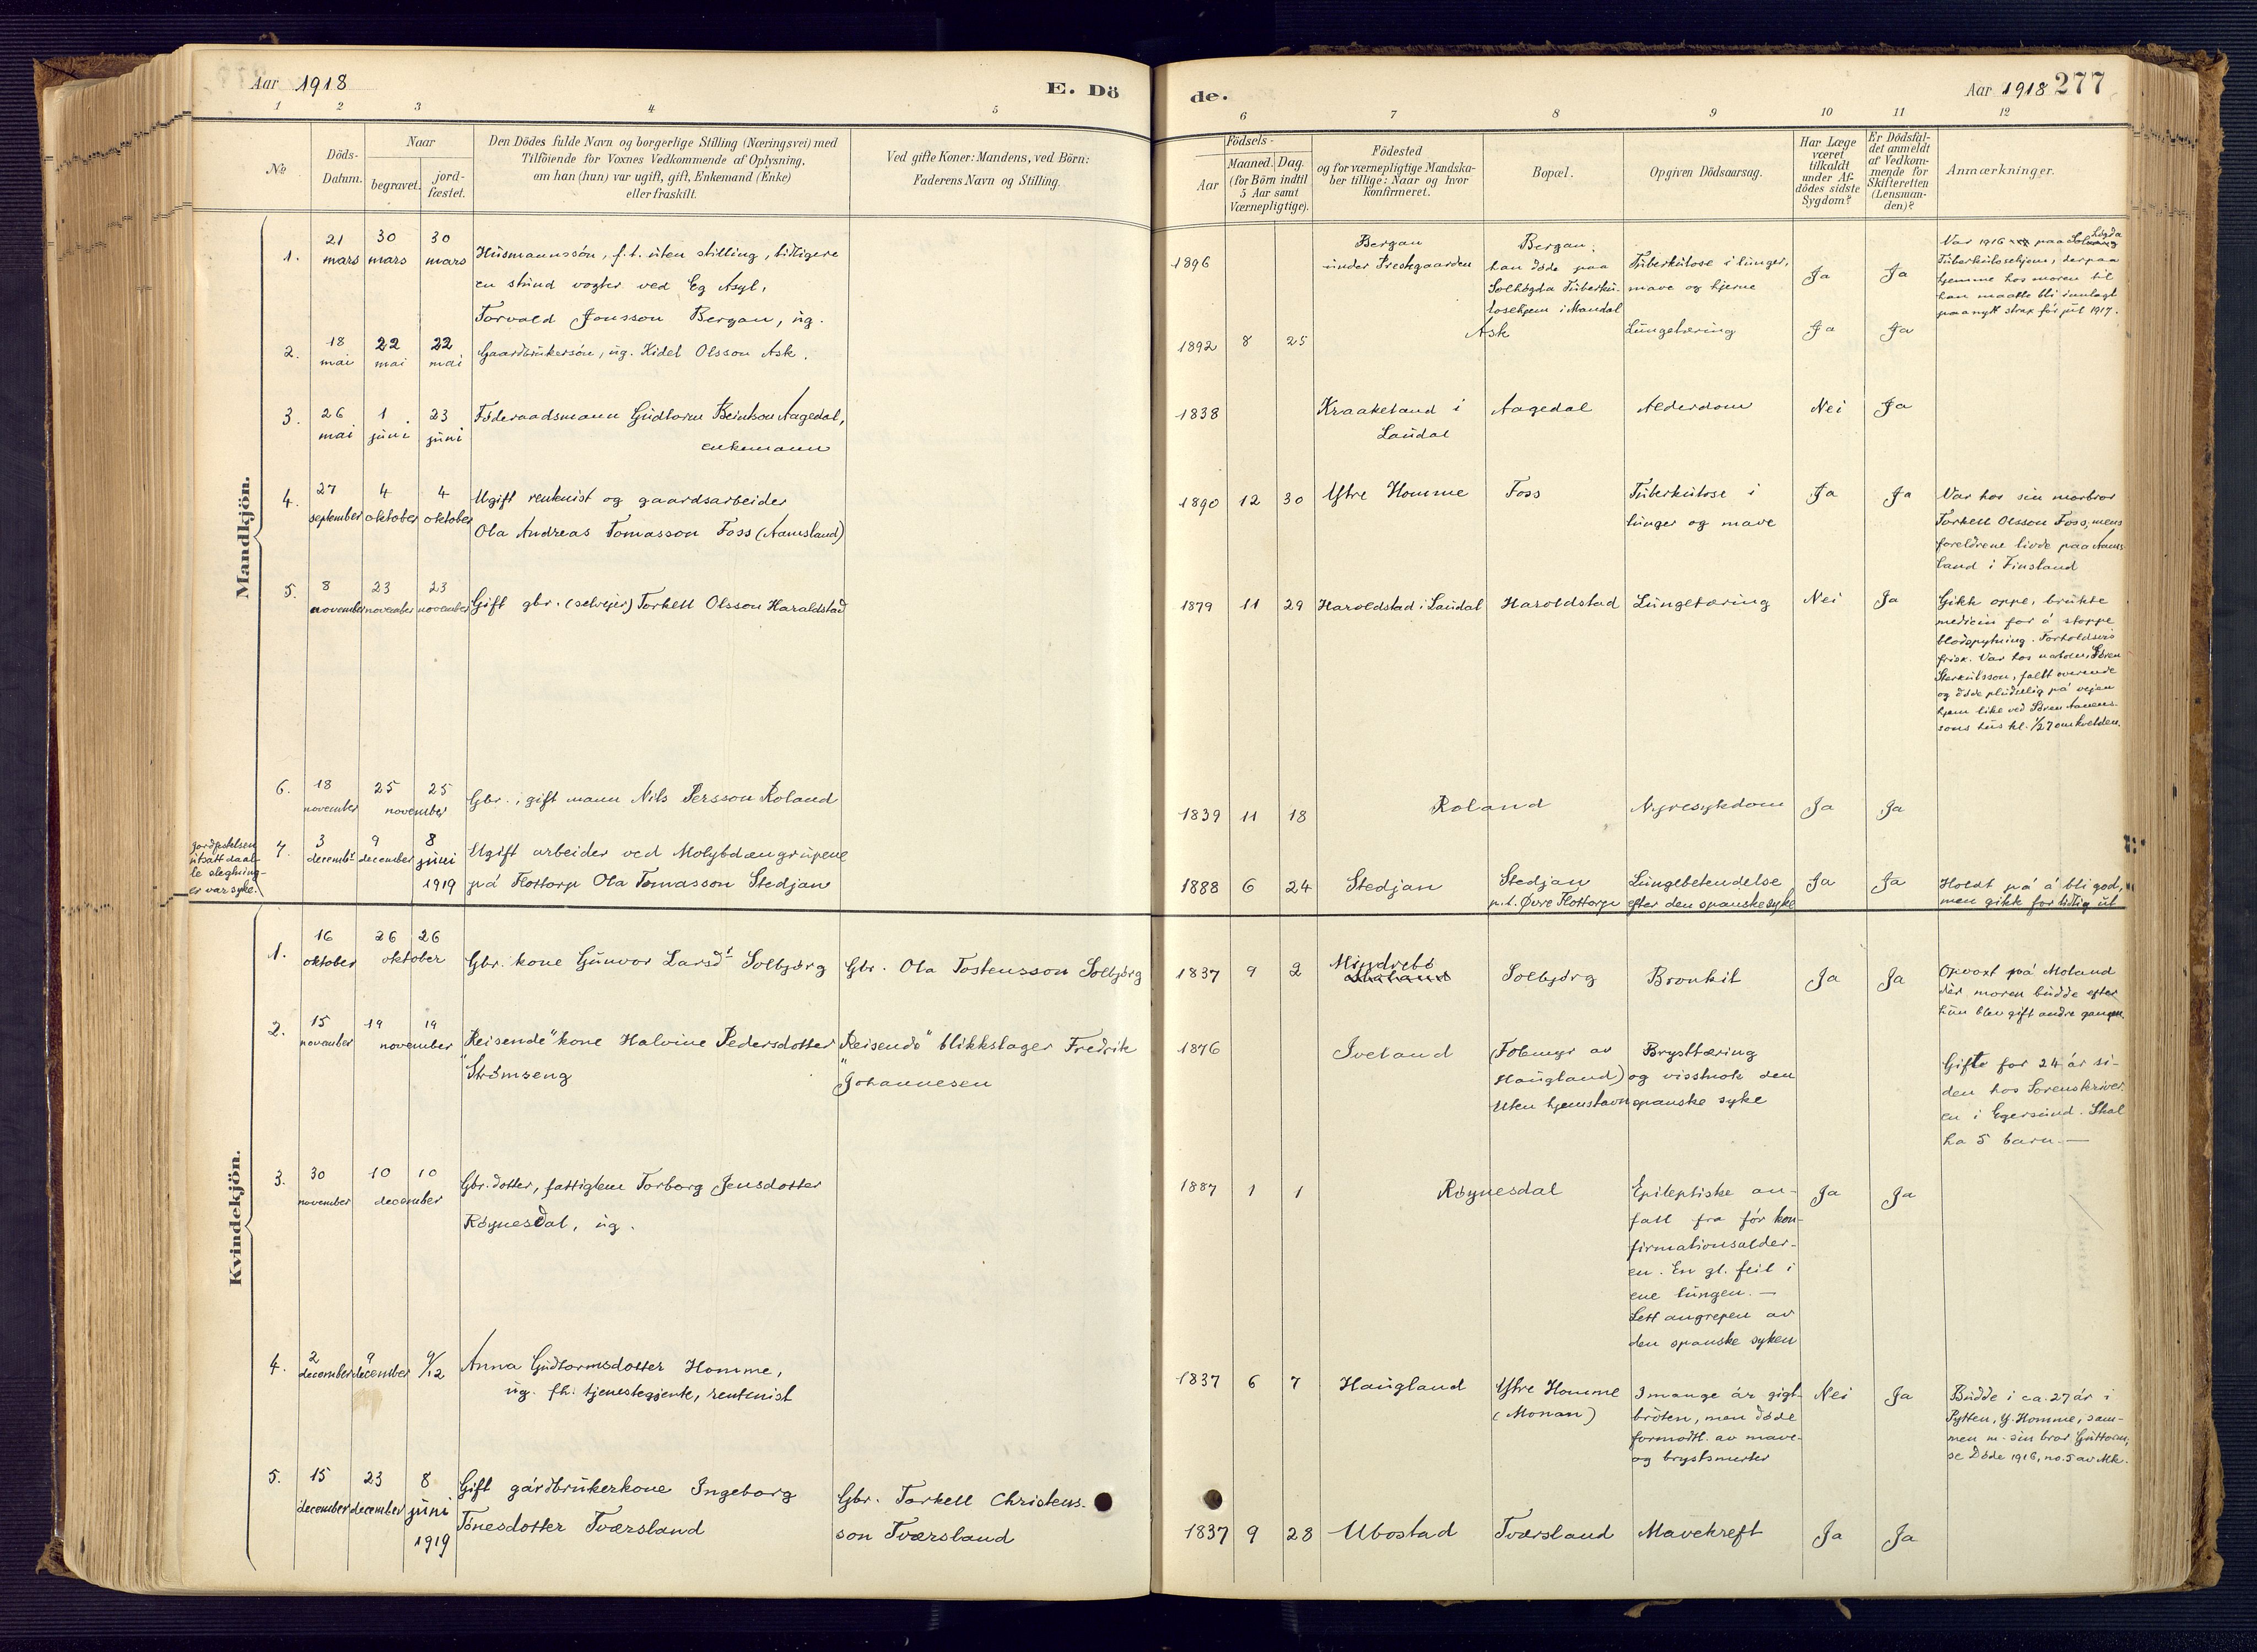 Aar 1918
E. Dö
de.
Aar 1918 277
1 2 3 4 5 6 7 8 9 10 11 12
No
Döds-
Datum.
Naar
begravet.
jord-
fæstet.
Den Dödes fulde Navn og borgerlige Stilling (Næringsvei) med
Tilföiende for Voxnes Vedkommende af Oplysning,
om han (hun) var ugift, gift, Enkemand (Enke)
eller fraskilt.
Ved gifte Koner: Mandens, ved Börn:
Faderens Navn og Stilling.
Födsels-
Aar
Maaned. Dag.
(for Börn indtil
5 Aar samt
Værnepligtige).
Födested
og for værnepligtige Mandska-
ber tillige: Naar og hvor
konfirmeret.
Bopæl.
Opgiven Dödsaarsag.
Har Læge
været
tilkaldt
under Af-
dödes sidste
Sygdom?
Er Dödsfal-
det anmeldt
af Vedkom-
mende for
Skifteretten
(Lensman-
den)?
Anmærkninger.
Mandkjön.
1.
21
mars
30
mars
30
mars
Husmannssøn, f.t. uten stilling, tidligere
en stund vogter ved Eg Asyl,
Torvald Jonsson Bergan, ug.
1896
Bergan
under Prestegaarden
Bergan.
han døde paa
Solhøgda Tuberku-
losehjem i Mandal
Tuberkulose i lunger,
mave og hjerne
Ja
Ja
Var 1916 paa Solhøgda
Tuberkulosehjem, derpaa
hjemme hos moren til
han maatte bli innlagt
paa nytt strax før jul 1917.
2.
18
mai
22
mai
22
mai
Gaardbrukersøn, ug. Kidel Olsson Ask.
1892 8 25
Ask
Lungetæring
Ja
Ja
3.
26
mai
1
juni
23
juni
Føderaadsmann Gudtorm Beintson Aagedal,
enkemann
1838
Kraakeland i
Laudal
Aagedal
Alderdom
Nei
Ja
4.
27
september
4
oktober
4
oktober
Ugift rentenist og gaardsarbeider
Ola Andreas Tomasson Foss (Aamsland)
1890 12 30
Ytre Homme
Foss
Tuberkulose i
lunger og mave
Ja
Ja
Var hos sin morbror
Torkell Olsson Foss, mens
foreldrene livde paa Aams-
land i Finsland
5.
8
november
23
november
23
november
Gift gbr. (selveier) Torkell Olsson Haraldstad
1879 11 29
Haroldstad i Laudal
Haroldstad
Lungetæring
Nei
Ja
Gikk oppe, brukte
medicin for å stoppe
blodspytning. Forholdsvis
frisk. Var hos naboen, Søren
Sterkulsson, fallt overende
og døde pludselig på vejen
hjem like ved Søren Aanens-
sons hus kl. 1/2 7 om kvelden.
6.
18
november
25 25
november
Gbr., gift mann Nils Persson Roland
1839 11 18
Roland
Nyresykdom
Ja
Ja
jordfestelsen
utsatt da al-
le slegtning-
er var syke.
7.
3
decembr
9
december
8
juni
1919
Ugift arbeider ved Molybdængrupene
på Flottorp Ola Tomasson Stedjan
1888 6 24
Stedjan
Stedjan
p.t. Øvre Flottorp
Lungebetendelse
efter den spanske syke
Ja
Ja
Holdt på å bli god,
men gikk for tidlig ut
Kvindekjön.
1.
16
oktober
26 26
oktober
Gbr. kone Gunvor Larsdt Solbjørg
Gbr. Ola Tostensson Solbjørg
1837 9 2
Mindrebø
Solbjørg
Bronkit
Ja
Ja
Opvoxt på Moland
der moren budde efter
hun blev gift andre gangen.
2.
15
november
19 19
november
"Reisende" kone Halvine Pedersdotter
Strømseng
"Reisende" blikkslager Fredrik
Johannesen
1876
Iveland
(Fobmyr av
Haugland)
Uten hjemstavn
Brysttæring
og visstnok den
spanske syke
Gifte for 24 år si-
den hos Sorenskriver-
en i Egersund. Skal
ha 5 barn. —
3.
30
november
10 10
december
Gbr. dotter, fattiglem Torborg Jensdotter
Røynesdal, ug.
1887 1 1
Røynesdal
Epileptiske an-
fall fra før kon-
firmationsalder-
en. En gl. feil i
ene lungen. —
Lett angrepen av
den spanske syken
Ja
Ja
4.
2
december
9
december
9/12
Anna Gudtormsdotter Homme,
ug. fh. tjenestegjente, rentenist
1837 6 7
Haugland
Ytre Homme
(Monan)
I mange år gigt-
bruten, men døde
formodtl. av mave-
og brystsmerter
Nei
Ja
Budde i ca. 27 år i
Pytten, Y. Homme, sam-
men m. sin bror Guttorm,
se Døde 1916, no. 5 av Mk.
5.
15
december
23
december
8
juni
1919
Gift gårdbrukerkone Ingeborg
Tønesdotter Tværsland
Gbr. Torkell Christens-
son Tværsland
1837 9 28
Ubostad
Tværsland
Mavekreft
Ja
Ja